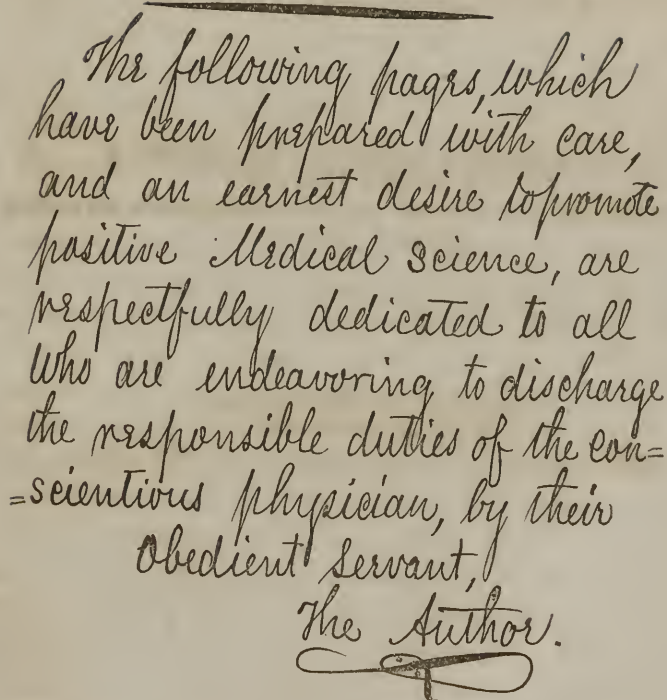 The following pages, which
have been prepared with care,
and an earnest desire to promote
positive Medical Science, are
respectfully dedicated to all
who are endeavoring to discharge
the responsible duties of the con=
=scientious physician, by their
Obedient Servant,
The Author.